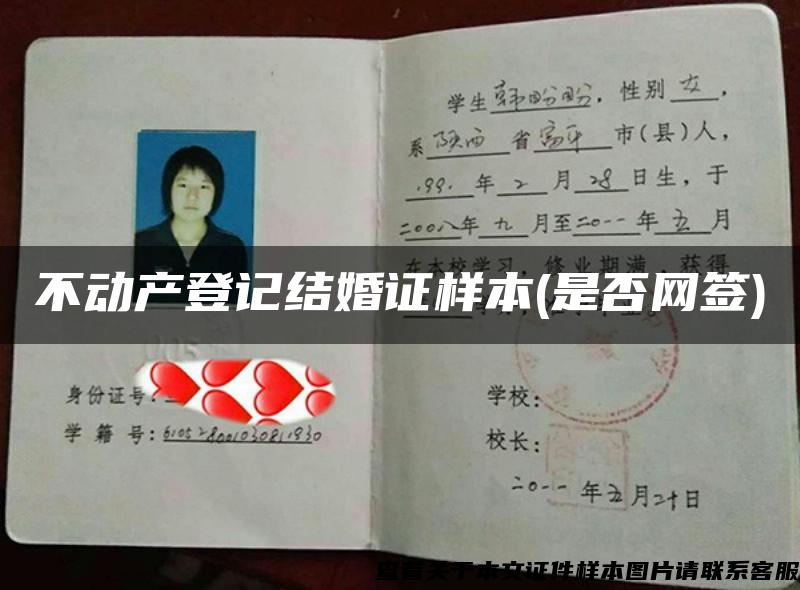 学生韩盼盼，性别女，
系陕西省富平市(县)人，
1991年2月28日生，于
二00八年九月至二0一一年五月
在本校学习，修业期满，获得
不动产登记结婚证样本(是否网签)
身份证号：
学籍号：6105280010308111930
学校：
校长：
二0一一年五月二十日
查看关于本文证件样本图片请联系客服